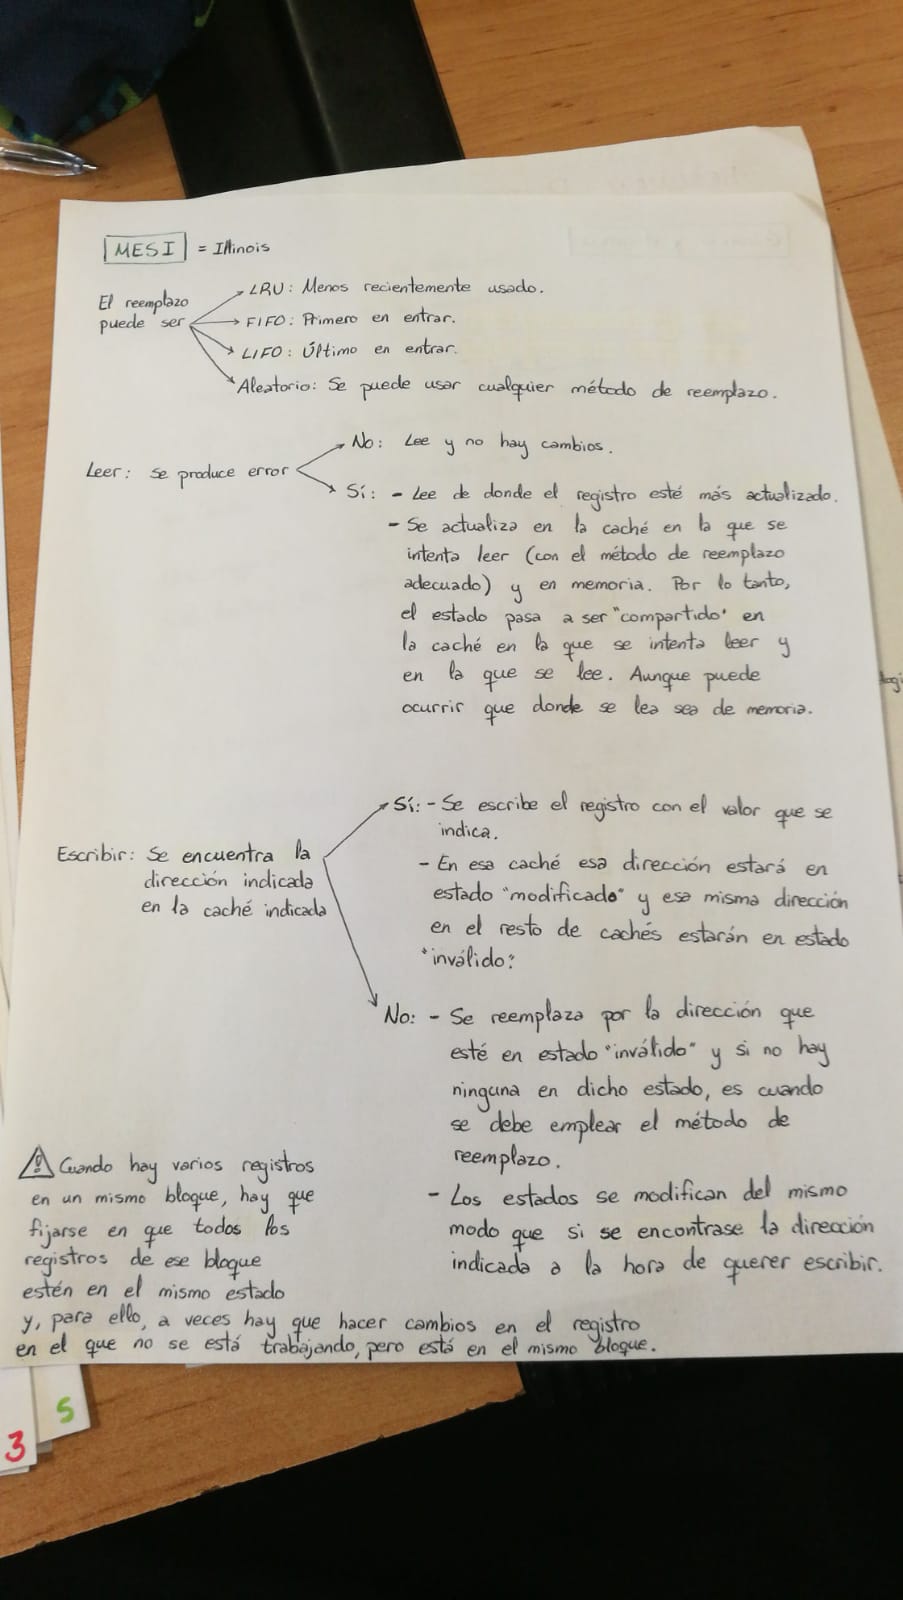 MESI = Illinois
El reemplazo
puede ser
LRU: Menos recientemente usado.
FIFO: Primero en entrar.
LIFO: Último en entrar.
Aleatorio: Se puede usar cualquier método de reemplazo.
Leer: se produce error
No: Lee y no hay cambios.
Sí: - Lee de donde el registro esté más actualizado.
- Se actualiza en la caché en la que se
intenta leer (con el método de reemplazo
adecuado) y en memoria. Por lo tanto,
el estado pasa a ser "compartido" en
la caché en la que se intenta leer y
en la que se lee. Aunque puede
ocurrir que donde se lea sea de memoria.
Escribir: Se encuentra la
dirección indicada
en la caché indicada
Sí: - Se escribe el registro con el valor que se
indica.
- En esa caché esa dirección estará en
estado "modificado" y esa misma dirección
en el resto de cachés estarán en estado
"inválido".
No: - Se reemplaza por la dirección que
esté en estado "inválido" y si no hay
ninguna en dicho estado, es cuando
se debe emplear el método de
reemplazo.
- Los estados se modifican del mismo
modo que si se encontrase la dirección
indicada a la hora de querer escribir.
Cuando hay varios registros
en un mismo bloque, hay que
fijarse en que todos los
registros de ese bloque
estén en el mismo estado
y, para ello, a veces hay que hacer cambios en el registro
en el que no se está trabajando, pero está en el mismo bloque.
3
5